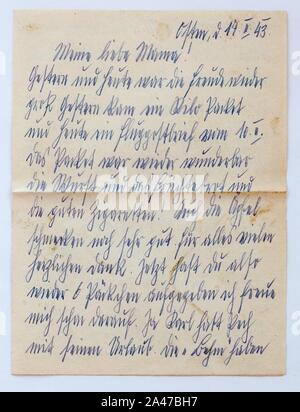 Osten, d. 17.II.43.
Meine liebe Mama!
Gestern und heute war die Freude wieder
groß. Gestern kam ein Kilo Packet
und heute ein Fluggpostbrief vom 10.II.
Das Packet war wieder wunderbar
die Wurst und das und
die guten Zigaretten! die Äpfel
schmecken noch sehr gut. Für alles vielen
herzlichen Dank. Jetzt hast du also
wieder 6 Päckchen aufgegeben ich freue
mich schon darauf. Ja Karl hatt Pech
mit seinen Urlaub. die Behm haben
alamy
Image ID: 2A47BH7
www.alamy.com